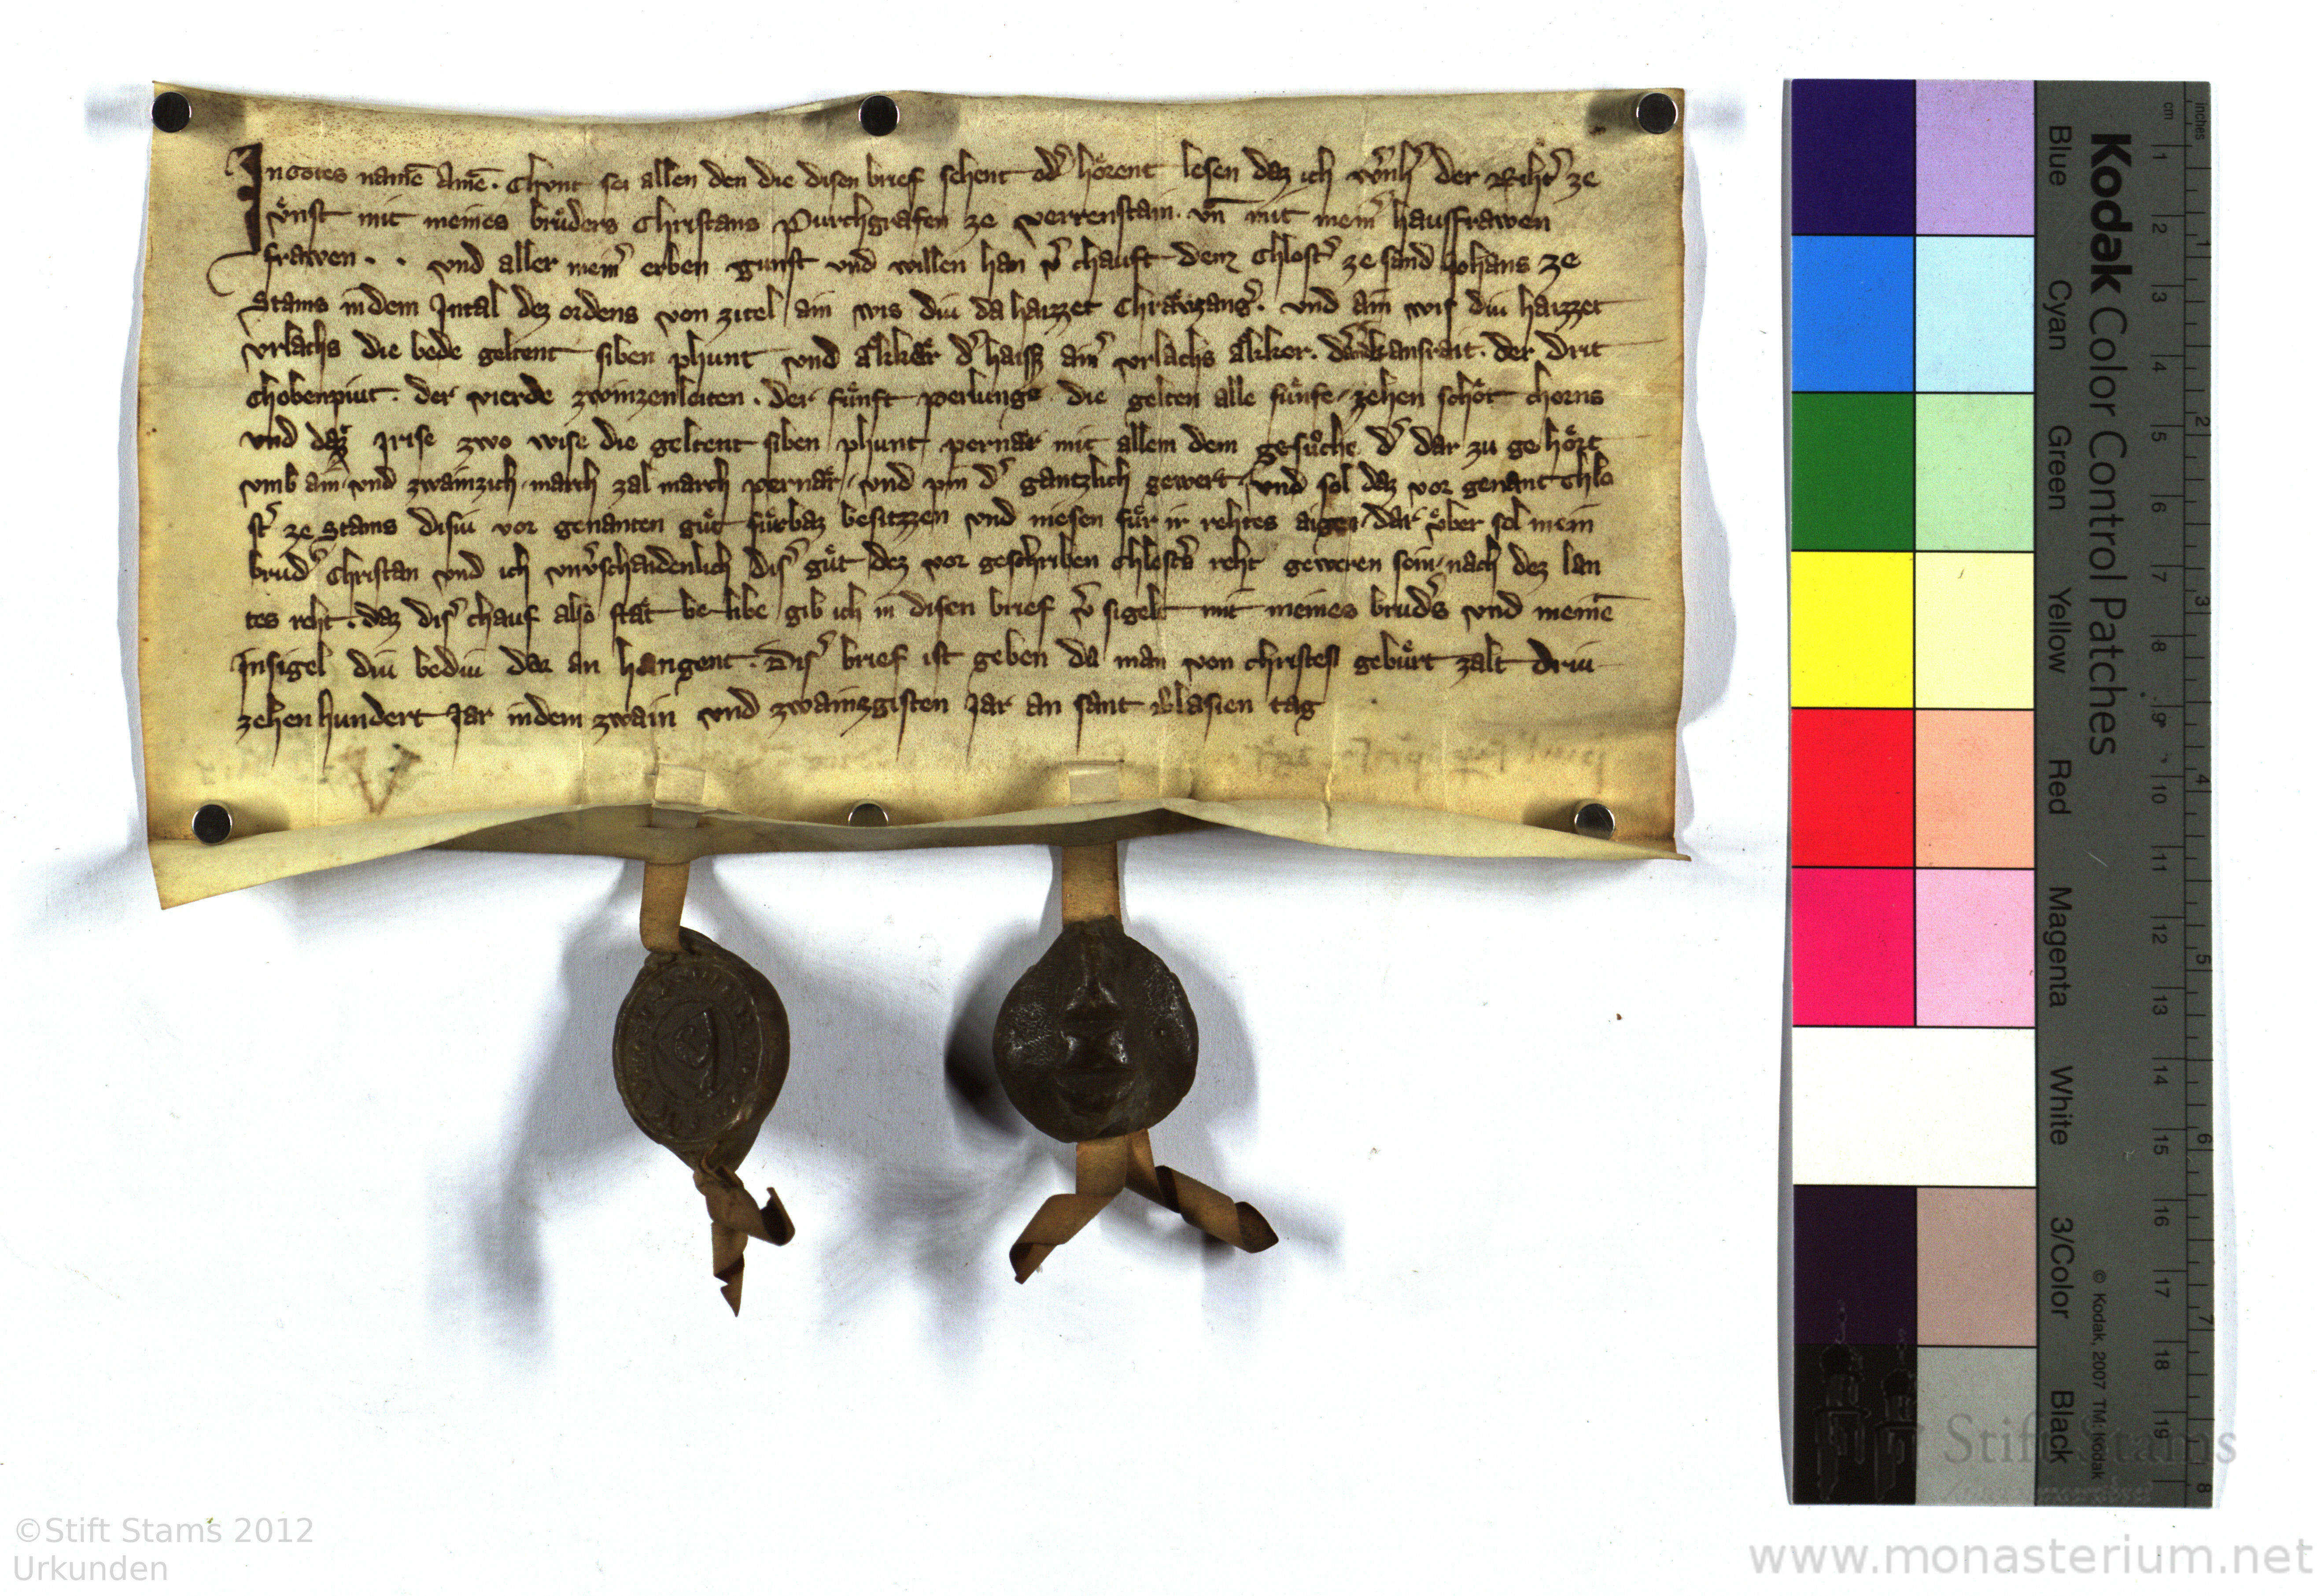 In gotes namē Amē. Chvnt sei allen den die disen brief sehent od᷑ hoͤrent lesen daz ich w᷑nh᷑ der Riht᷑ ze
vͤnst mit meines bruͦders Christans Purchgrafen ze verrenstain. vn̄ mit mein᷑ hausfrawen
frawen . . vnd aller mein᷑ erben gunst vnd willen han v᷑chauft dem Chlost᷑ ze sand Johans ze
Stams in dem Jntal dez ordens von zitel ain wis div da haizzet Chraͤwzang᷑. vnd ain wis div haizzet
vrlachs die bede geltent siben phunt vnd aͤkkaͤr d᷑ haizz ain᷑ vrlachs aͤkker. der drit
chobenpivt. der vierde zwinzenleiten. der fuͤnft perlungs die gelten alle fuͤnfe zehen schoͤt chorns
vnd daz Jrise zwo wise die geltent siben phunt pernaͤr mit allem dem gesuͦche d᷑ dar zu gehoͤrt
vmb ain vnd zwainzich march zal march pernaͤr vnd pin d᷑ gantzlich gewert vnd sol daz vor genant Chlo
st᷑ ze Stams disiv vor genanten guͤt fuͤrbaz besitzzen vnd niesen fuͤr ir rehtes aigen dar vͤber sol mein
brud᷑ Christan vnd ich vnv᷑schaidenlich dis᷑ guͤt dez vor geschriben Chlost᷑s reht geweren sein nach dez lan
tes reht. daz dis᷑ chauf also staͤt belibe gib ich in disen brief v᷑sigelt mit meines brud᷑s vnd meinē
Jnsigel div bediv dar an hangent. Dis᷑ brief ist geben da man von christes gebuͤrt zalt driv
zehen hundert Jar in dem zwain vnd zwainzgisten Jar an sant Blasien tag
V
Kodak Color Control Patches
Blue Cyan Green Yellow Red Magenta White 3/Color Black
© Kodak, 2007 TM: Kodak
cm 1 2 3 4 5 6 7 8 9 10 11 12 13 14 15 16 17 18 19
inches 1 2 3 4 5 6 7 8
Stift Stams
©Stift Stams 2012
Urkunden
www.monasterium.net